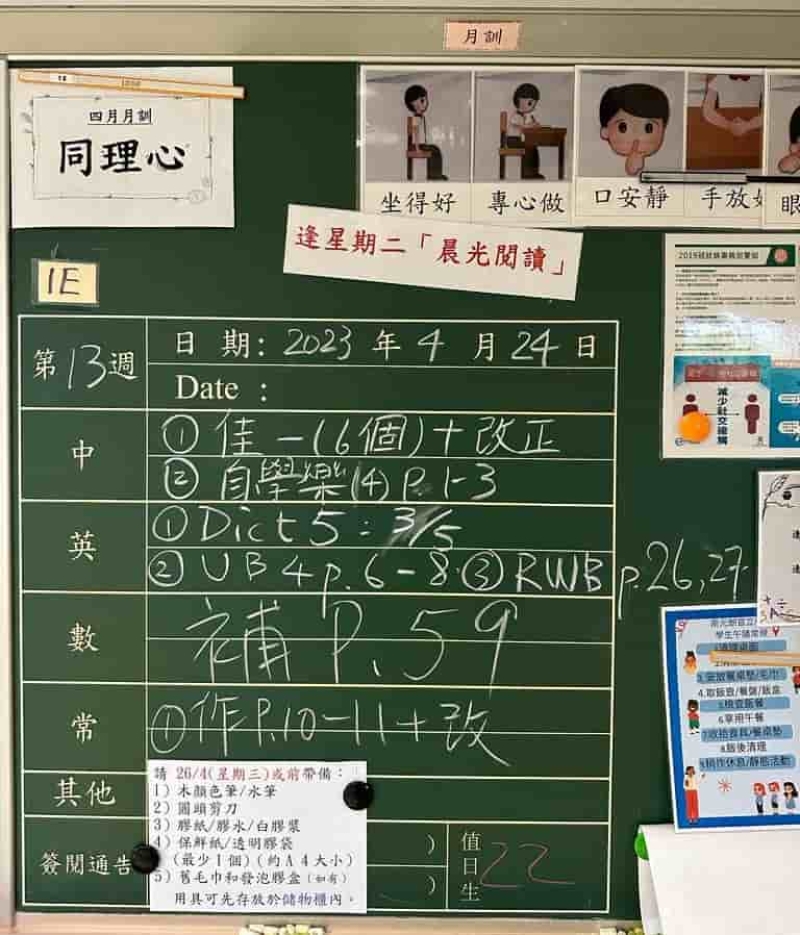 月訓
四月月訓
同理心
坐得好
專心做
口安靜
手放
眼
逢星期二「晨光閱讀」
1E
第13週
日 期: 2023 年 4 月 24 日
Date :
中
① 佳一(6個)+改正
② 自學樂(4) P.1-3
英
① Dict 5 : 3/5
② UB4 p.6-8 ③ RWB p.26,27
數
補 P.59
常
① 作P.10-11+改
其他
請 26/4(星期三)或前帶備:
1) 木顏色筆/水筆
2) 圓頭剪刀
3) 膠紙/膠水/白膠漿
4) 保鮮紙/透明膠袋
(最少1個)(約A4大小)
5) 舊毛巾和發泡膠盒(如有)
用具可先存放於儲物櫃內。
簽閱通告
)
)
值日生
22
減少社交接觸
學生午膳常規
3.安放餐桌墊/毛巾
4.取飯壺/餐盤/飯盒
5.檢查飯餐
6.享用午餐
7.收拾食具/餐桌墊
8.飯後清理
9.稍作休息/靜態活動